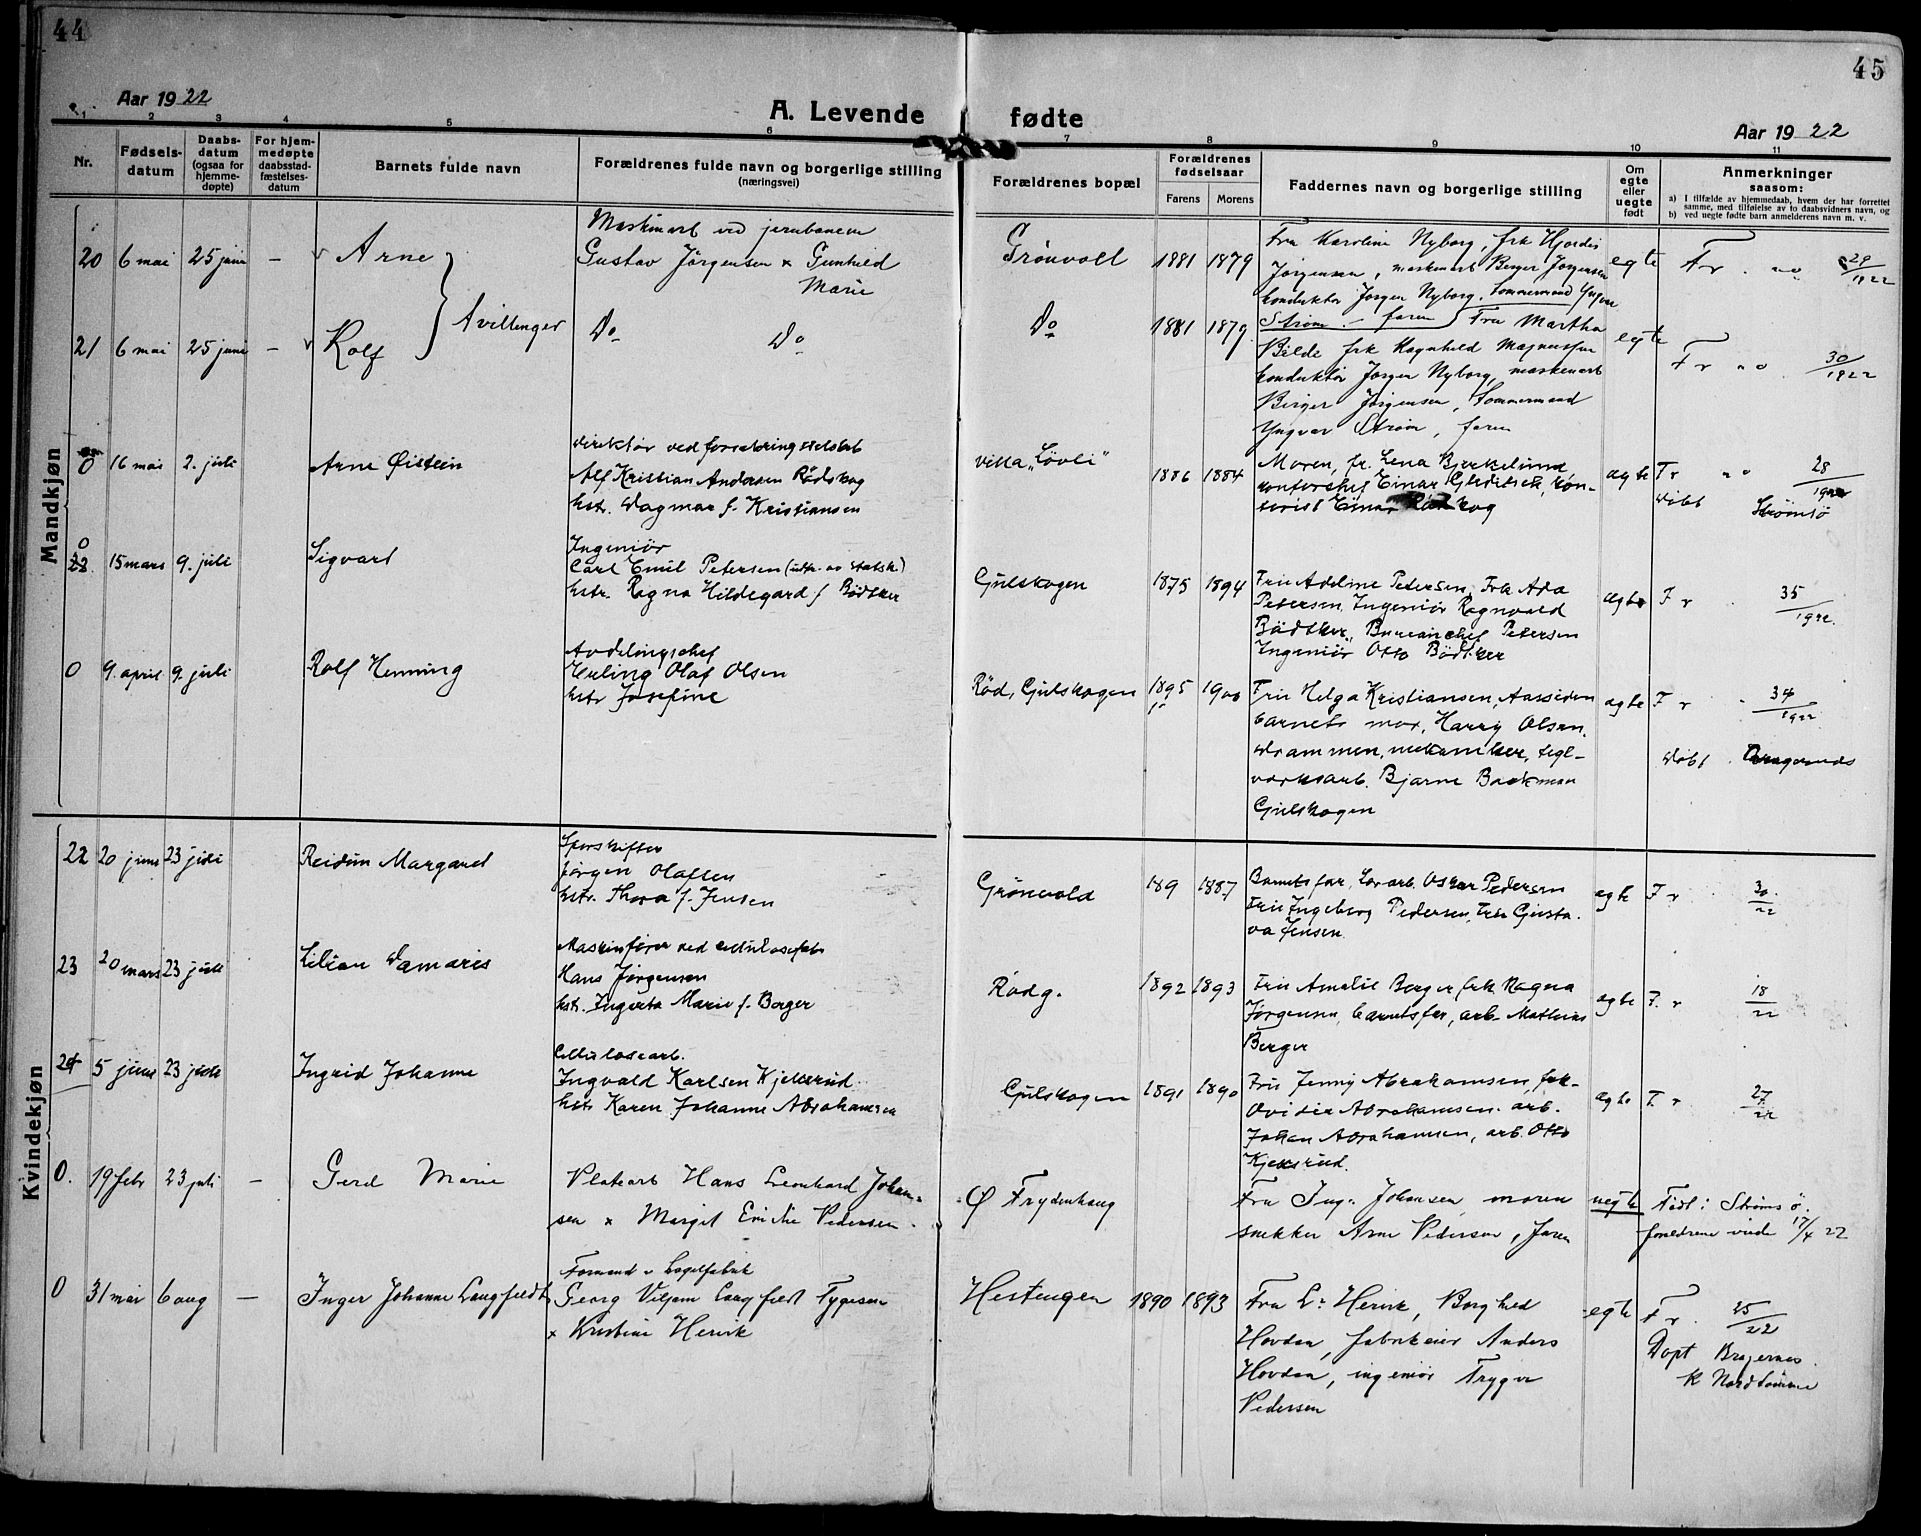 44
45
Aar 1922
A. Levende
fødte
Aar 1922
1 2 3 4 5 6 7 8 9 10 11
Nr.
Fødsels-
datum
Daabs-
datum
(ogsaa for
hjemme-
døpte)
For hjem-
medøpte
daabsstad-
fæstelses-
datum
Barnets fulde navn
Forældrenes fulde navn og borgerlige stilling
(næringsvei)
Forældrenes bopæl
Forældrenes
fødselsaar
Farens Morens
Faddernes navn og borgerlige stilling
Om
egte
eller
uegte
født
Anmerkninger
saasom:
a) I tilfælde av hjemmedaab, hvem der har forrettet
samme, med tilføielse av to daabsvidners navn, og
b) ved uegte fødte barn anmelderens navn m. v.
Mandkjøn
20 6 mai 25 juni – Arne
Maskinarb ved jernbanen
Gustav Jørgensen x Gunhild
Marie
Grønvold 1881 1879
Fru Karoline Nyborg, frk Hjordis
Jørgensen, maskinarb Berger Jørgensen
konduktør Jørgen Nyborg, Tømmermand Yngvar
Strøm – faren
egte Fr. no 29/1922
} Tvillinger
21 6 mai 25 juni – Rolf
Do Do
Do 1881 1879
Fru Martha
Bilde frk Ragnhild Magnussen
konduktør Jørgen Nyborg, maskinarb
Birger Jørgensen, Tømmermand
Yngvar Strøm, faren
egte Fr no 30/1922
0 16 mai 2. juli Arne Øistein
Direktør ved forsikringsselskab
Alf Kristian Andersen Rødskog
hstr. Dagmar f. Kristiansen
Villa „Løvli" 1886 1884
Moren, fr. Lena Bjerkelund,
kontorchef Einar Gleditsch, kon-
torist Einar Rødskog
egte Fr no 28/1922
Døbt Strømsø
0
22 15 mars 9. juli Sigvart
Ingeniør
Carl Emil Petersen (utm. av statsk)
hstr. Ragna Hildegard f Bödtker
Gulskogen 1875 1894
Fru Adeline Petersen, Frk Ada
Petersen, Ingeniør Ragnvald
Bödtker, Bureauchef Petersen
Ingeniør Otto Bödtker
egte F r 35/1922.
0 9. april 9. juli Rolf Henning
Avdelingschef
Erling Olaf Olsen
hstr Josefine
Rød, Gulskogen 1895 1900
Fru Helga Kristiansen, Aassiden
barnets mor, Harry Olsen,
Drammen, mekaniker, tegl-
verksarb. Bjarne Backman
Gulskogen
egte F r 34/1922
Døbt Bragernes
Kvindekjøn
22 20 juni 23 juli Reidun Margaret
Sporskifter
Jørgen Olafsen
hstr. Thora f. Jensen
Grönvold 189 1887
Barnets far, Lov arb. Oskar Pedersen
Fru Ingeborg Pedersen, Fru Gusta-
va Jensen
egte F r 30/22
23 20 mars 23 juli Lilian Damaris
Maskinfører ved cellulosefabr
Hans Jørgensen
hstr. Ingerta Marie f. Berger
Rødg. 1892 1893
Fru Amalie Berger, frk Ragna
Jørgensen, barnets far, arb. Mathias
Berger
egte F. r 18/22
24 5 juni 23 juli Ingrid Johanne
Cellulosearb.
Ingvald Karlsen Kjekerud
hstr Karen Johanne Abrahamsen
Gulskogen 1891 1890
Fru Jenny Abrahamsen, frk.
Ovidia Abrahamsen. arb.
Johan Abrahamsen, arb. Otto
Kjekerud.
egte F r 27/22
0. 19 febr 23 juli – Gerd Marie
Platearb Hans Leonhard Johan-
sen x Margit Emilie Pedersen.
Ø Frydenhaug
Fru Ing. Johansen moren
snekker Arne Pedersen, faren
uegte
Født i Strømsø.
forældrene viede 17/4 22
0 31 mai 6 aug – Inger Johanne Langfeldt
Formand v. Lagelfabrik
Georg Viljam Langfeldt Tygesen
x Kristine Hervik
Hestengen 1890 1893
Fru L. Hervik, Borghild
Hovden, fabrikeier Anders
Hovden, ingeniør Trygve
Pedersen
egte Fr. 25/22
Døpt Bragernes.